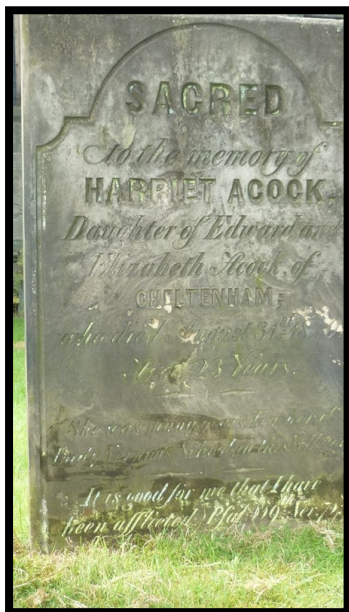 SACRED
to the memory of
HARRIET ACOCK,
Daughter of Edward and
Elizabeth Acock, of
CHELTENHAM;
who died August 31st
Aged 23 Years.
She was many years Teacher of
School in this
It is good for me that I have
been afflicted. Psa. 119. Ver.